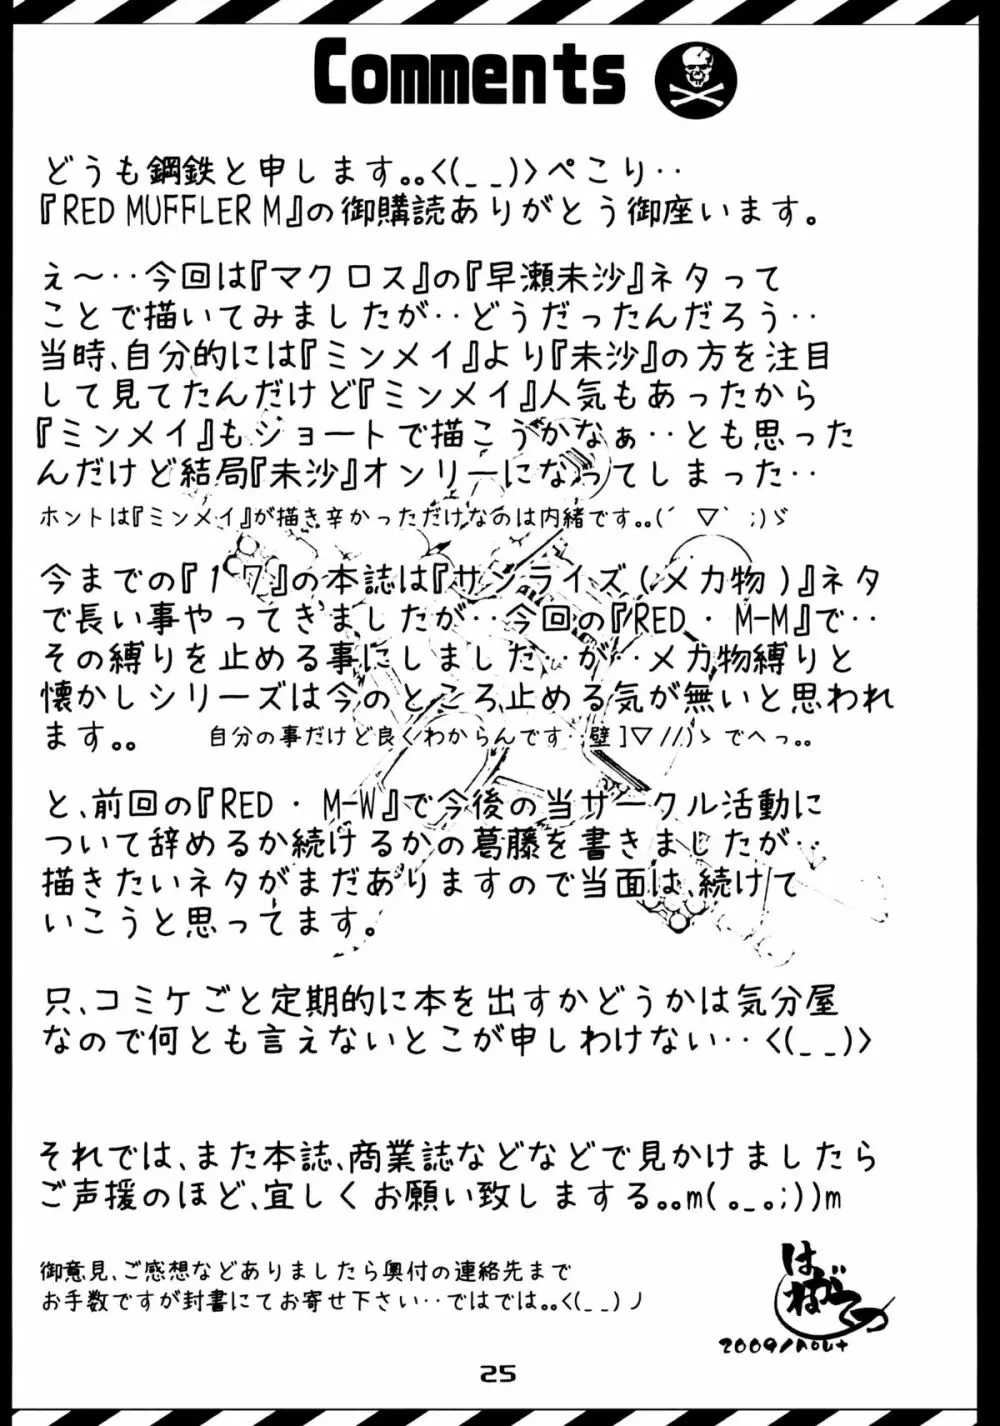 Comments
どうも鋼鉄と申します｡｡<(_ _)>ぺこり‥
『RED MUFFLER M』の御購読ありがとう御座います。
え～‥今回は『マクロス』の『早瀬未沙』ネタって
ことで描いてみましたが‥どうだったんだろう‥
当時､自分的には『ミンメイ』より『未沙』の方を注目
して見てたんだけど『ミンメイ』人気もあったから
『ミンメイ』もショートで描こうかなぁ‥とも思った
んだけど結局『未沙』オンリーになってしまった‥
ホントは『ミンメイ』が描き辛かっただけなのは内緒です｡｡(´ ▽｀ ;)ゞ
今までの『17』の本誌は『サンライズ(メカ物)』ネタ
で長い事やってきましたが‥今回の『RED ・ M-M』で‥
その縛りを止める事にしました‥が‥メカ物縛りと
懐かしシリーズは今のところ止める気が無いと思われ
ます｡｡ 自分の事だけど良くわからんです‥壁]▽//)ゝでへっ｡｡
と､前回の『RED ・ M-W』で今後の当サークル活動に
ついて辞めるか続けるかの葛藤を書きましたが‥
描きたいネタがまだありますので当面は､続けて
いこうと思ってます。
只､コミケごと定期的に本を出すかどうかは気分屋
なので何とも言えないとこが申しわけない‥<(_ _)>
それでは､また本誌､商業誌などなどで見かけましたら
ご声援のほど､宜しくお願い致しまする｡｡m(｡_｡;))m
御意見､ご感想などありましたら奥付の連絡先まで
お手数ですが封書にてお寄せ下さい‥ではでは｡｡<(_ _)ノ
2009/
25